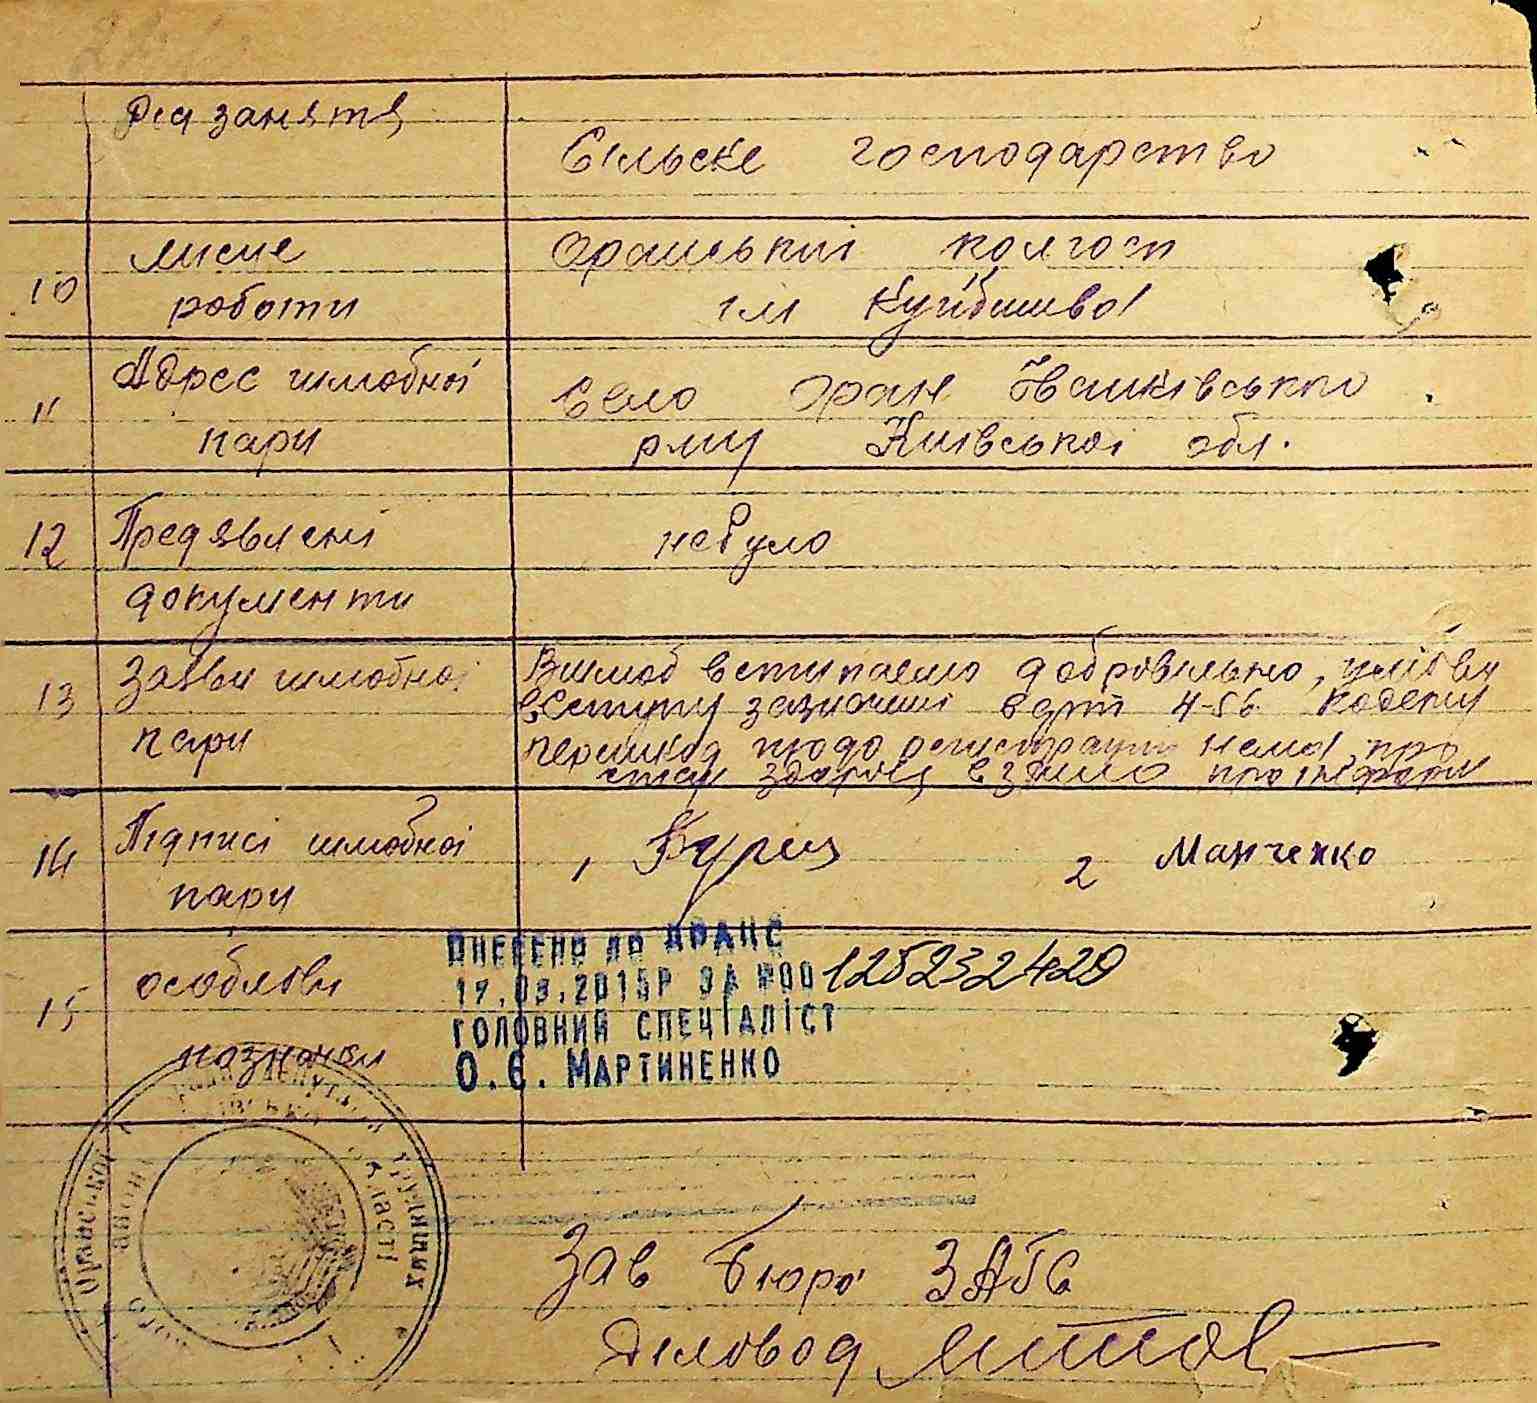 Рід заняття
Сільске господарство
10
місце
роботи
Оранський колгосп
ім Куйбишева
11
Адрес шлюбної
пари
Село Оране Іванківського
р-ну Київської обл.
12
Предявлені
документи
небуло
13
Заяви шлюбної
пари
Вшлюб вступаемо добровільно, умови
вступу зазначині варт 4-56 кодексу
перешкод що до регистрации нема про
стан здоровя взаімо проінформ
14
Підписі шлюбної
пари
1
2 Манченко
15
особливи
позначки
ВНЕСЕНО ДО ДРАЦС
.2015Р ЗА №00125232420
ГОЛОВНИЙ СПЕЦІАЛІСТ
О.Є. МАРТИНЕНКО
Оранської трудящих області
Зав Бюро ЗАГС
Діловод